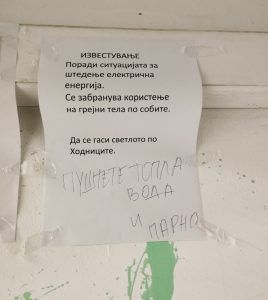 ИЗВЕСТУВАЊЕ
Поради ситуацијата за
штедење електрична
енергија.
Се забранува користење
на грејни тела по собите.
Да се гаси светлото по
Ходниците.
ПУШТЕТЕ ТОПЛА
ВОДА
И
ПАРНО